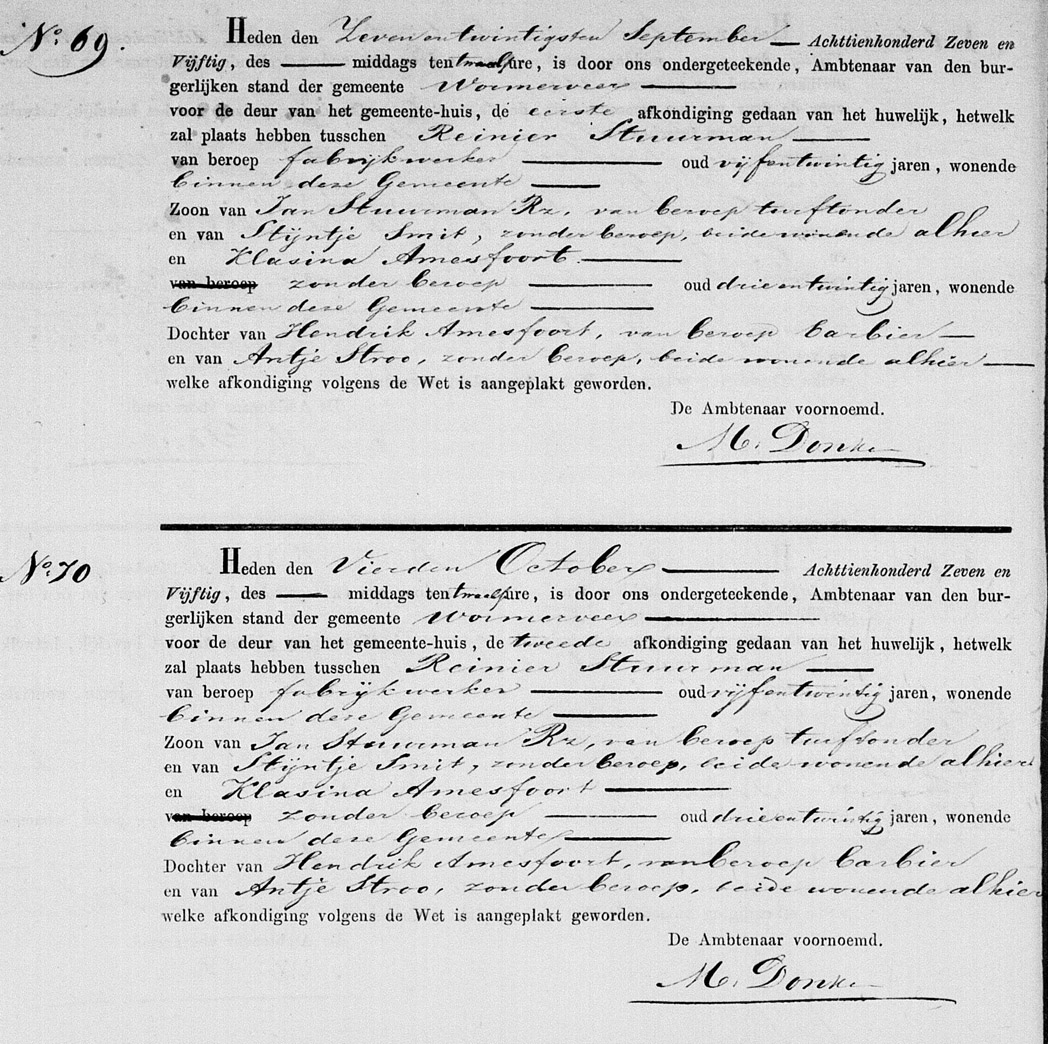 No. 69.
Heden den Zevenentwintigsten September — Achttienhonderd Zeven en
Vijftig, des — middags ten twaalf ure, is door ons ondergeteekende, Ambtenaar van den bur-
gerlijken stand der gemeente Wormerveer —
voor de deur van het gemeente-huis, de eerste afkondiging gedaan van het huwelijk, hetwelk
zal plaats hebben tusschen Reinier Stuurman —
van beroep fabrijkwerker — oud vijfentwintig jaren, wonende
binnen deze Gemeente —
Zoon van Jan Stuurman Rz, van beroep turftonder
en van Stijntje Smit, zonder beroep, beide wonende alhier
en Klasina Amesfoort. —
van beroep zonder beroep — oud drieentwintig jaren, wonende
binnen deze Gemeente —
Dochter van Hendrik Amesfoort, van beroep barbier —
en van Antje Stroo, zonder beroep, beide wonende alhier —
welke afkondiging volgens de Wet is aangeplakt geworden.
De Ambtenaar voornoemd.
M. Donker
No. 70
Heden den Vierden October — Achttienhonderd Zeven en
Vijftig, des — middags ten twaalf ure, is door ons ondergeteekende, Ambtenaar van den bur-
gerlijken stand der gemeente Wormerveer —
voor de deur van het gemeente-huis, de tweede afkondiging gedaan van het huwelijk, hetwelk
zal plaats hebben tusschen Reinier Stuurman —
van beroep fabrijkwerker — oud vijfentwintig jaren, wonende
binnen deze Gemeente —
Zoon van Jan Stuurman Rz, van beroep turftonder
en van Stijntje Smit, zonder beroep, beide wonende alhier
en Klasina Amesfoort —
van beroep zonder beroep — oud drieentwintig jaren, wonende
binnen deze Gemeente —
Dochter van Hendrik Amesfoort, van beroep barbier
en van Antje Stroo, zonder beroep, beide wonende alhier
welke afkondiging volgens de Wet is aangeplakt geworden.
De Ambtenaar voornoemd.
M. Donker